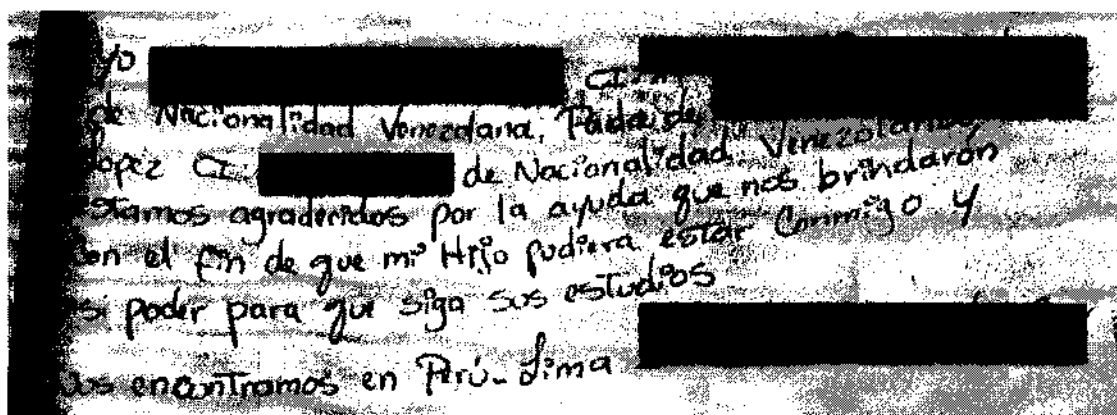 yo CI:
de Nacionalidad Venezolana, Padre de
Lopez CI: de Nacionalidad Venezolanos,
Estamos agradecidos por la ayuda que nos brindaron
con el fin de que mi Hijo pudiera estar Conmigo y
asi poder para que siga sus estudios
Nos encontramos en Perú-Lima